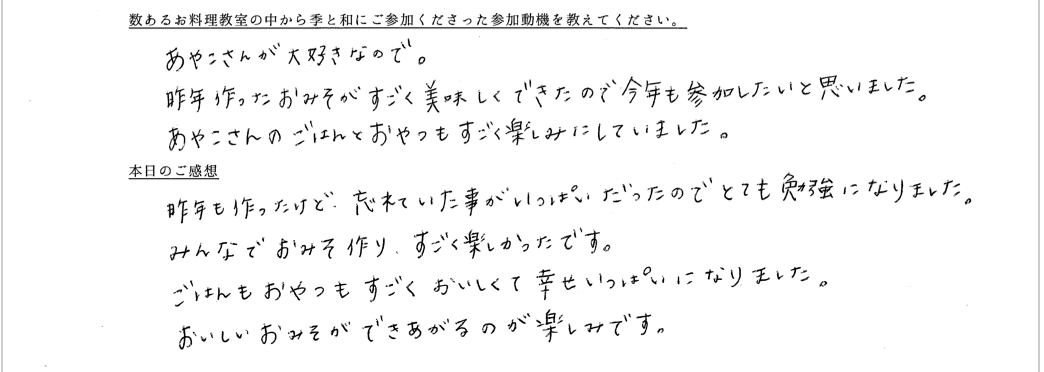 数あるお料理教室の中から季と和にご参加くださった参加動機を教えてください。
あやこさんが大好きなので。
昨年作ったおみそがすごく美味しくできたので今年も参加したいと思いました。
あやこさんのごはんとおやつもすごく楽しみにしていました。
本日のご感想
昨年も作ったけど、忘れていた事がいっぱいだったのでとても勉強になりました。
みんなでおみそ作り、すごく楽しかったです。
ごはんもおやつもすごくおいしくて幸せいっぱいになりました。
おいしいおみそができあがるのが楽しみです。